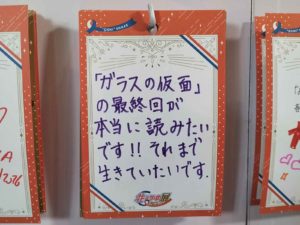 「ガラスの仮面」
の最終回が
本当に読みたい
です!! それまで
生きていたいです。